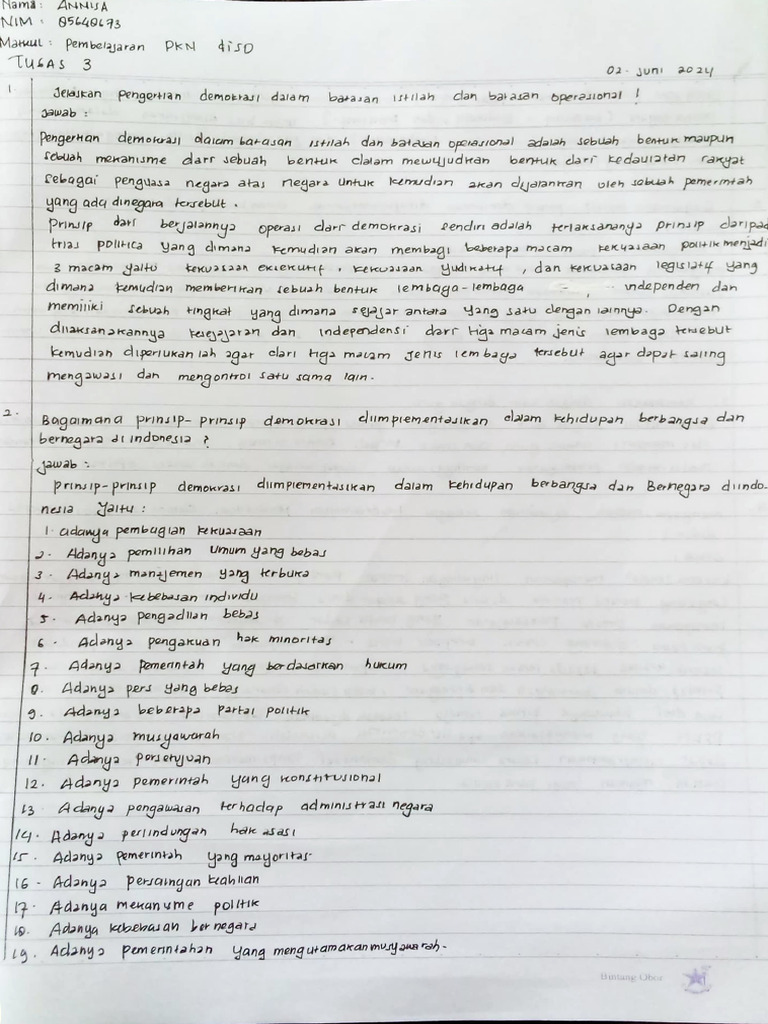 Nama : ANNISA
NIM : 05640673
Matkul : Pembelajaran PKN di SD
TUGAS 3
02. Juni 2024
1. Jelaskan pengertian demokrasi dalam batasan istilah dan batasan operasional !
Jawab :
Pengertian demokrasi dalam batasan istilah dan batasan operasional adalah sebuah bentuk maupun
sebuah mekanisme dari sebuah bentuk dalam mewujudkan bentuk dari kedaulatan rakyat
sebagai penguasa negara atas negara untuk kemudian akan dijalankan oleh sebuah pemerintah
yang ada dinegara tersebut.
Prinsip dari berjalannya operasi dari demokrasi sendiri adalah terlaksananya prinsip daripad
trias politica yang dimana kemudian akan membagi beberapa macam kekuasaan politik menjadi
3 macam yaitu kekuasaan eksekutif, kekuasaan yudikatif, dan kekuasaan legislatif yang
dimana kemudian memberikan sebuah bentuk lembaga-lembaga independen dan
memiliki sebuah tingkat yang dimana sejajar antara yang satu dengan lainnya. Dengan
dilaksanakannya kesejajaran dan independensi dari tiga macam jenis lembaga tersebut
kemudian diperlukan lah agar dari tiga macam jenis lembaga tersebut agar dapat saling
mengawasi dan mengontrol satu sama lain.
2. Bagaimana prinsip-prinsip demokrasi diimplementasikan dalam kehidupan berbangsa dan
bernegara di indonesia ?
Jawab :
prinsip-prinsip demokrasi diimplementasikan dalam kehidupan berbangsa dan Bernegara diindo-
nesia yaitu :
1. adanya pembagian kekuasaan
2. Adanya pemilihan umum yang bebas
3. Adanya manajemen yang terbuka
4. Adanya kebebasan individu
5. Adanya pengadilan bebas
6. Adanya pengakuan hak minoritas
7. Adanya pemerintah yang berdasarkan hukum
8. Adanya pers yang bebas
9. Adanya beberapa partai politik
10. Adanya musyawarah
11. Adanya persetujuan
12. Adanya pemerintah yang konstitusional
13 Adanya pengawasan terhadap administrasi negara
14. Adanya perlindungan hak asasi
15. Adanya pemerintah yang mayoritas
16 - Adanya persaingan keahlian
17. Adanya mekanisme politik
18. Adanya kebebasan bernegara
19. Adanya pemerintahan yang mengutamakan musyawarah.
Bintang Obor